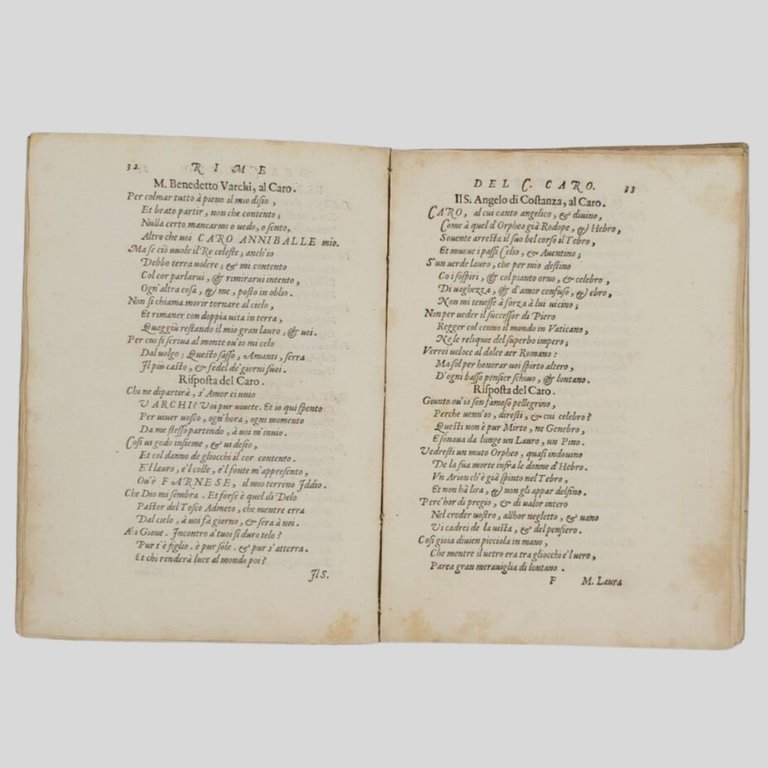 32 RIME
M. Benedetto Varchi, al Caro.
Per colmar tutto à pieno il mio disio,
Et beato partir, non che contento;
Nulla certo mancarmi o uedo, o sento,
Altro che uoi CARO ANNIBALLE mio.
Ma se ciò uuole il Re celeste; anch'io
Debbo terra uolere; & mi contento
Col cor parlarui, & rimirarui intento,
Ogn'altra cosa, & me, posto in oblio.
Non si chiama morir tornare al cielo,
Et rimaner con doppia uita in terra,
Quaggiù restando il mio gran lauro, & uoi.
Per cui si scriua al monte ou'io mi celo
Dal uolgo; Questo sasso, Amanti, serra
Il piu casto, & fedel de giorni suoi.
Risposta del Caro.
Chi ne departirà, s'Amor ci unio
VARCHI? Voi pur uiuete. Et io qui spento
Per uiuer uosco, ogn'hora, ogni momento
Da me stesso partendo, à uoi m'inuio.
Cosi ui godo insieme, & ui desio,
Et col danno de gliocchi il cor contento.
E'l lauro, e'l colle, e'l fonte m'appresento,
Ou'è FARNESE, il mio terreno Iddio.
Che Dio mi sembra. Et forse è quel di Delo
Pastor del Tosco Admeto, che mentre erra
Dal cielo, à uoi fà giorno, & serà à noi.
Ai Gioue. Incontro à tuoi si duro telo?
Pur t'è figlio. è pur sole. & pur s'atterra.
Et chi renderà luce al mondo poi?
Il S.
DEL C. CARO. 33
Il S. Angelo di Costanza, al Caro.
CARO, al cui canto angelico, & diuino,
Come à quel d'Orpheo già Rodope, & Hebro,
Souente arresta il suo bel corso il Tebro,
Et muoue i passi Celio, & Auentino;
S'un uerde lauro, che per mio destino
Co i sospiri, & col pianto orno, & celebro,
Di uaghezza, & d'amor confuso, & ebro,
Non mi tenesse à forza à lui uicino;
Non per ueder il successor di Piero
Regger col cenno il mondo in Vaticano,
Ne le reliquie del superbo impero;
Verrei ueloce al dolce aer Romano:
Ma sol per honorar uoi spirto altero,
D'ogni basso pensier schiuo, & lontano.
Risposta del Caro.
Giunto ou'io son famoso pellegrino,
Perche uenn'io, diresti, & cui celebro?
Questi non è pur Mirto, ne Genebro,
E sonaua da lunge un Lauro, un Pino.
Vedresti un muto Orpheo, quasi indouino
De la sua morte infra le donne d'Hebro.
Vn Arion ch'è già spinto nel Tebro,
Et non hà lira, & non gli appar delfino.
Perc'hor di pregio, & di ualor intero
Nel creder uostro, alhor negletto, & uano
Vi cadrei de la uista, & del pensiero.
Cosi gioia diuien picciola in mano,
Che mentre il uetro era tra gliocchi e'l uero,
Parea gran merauiglia di lontano.
F M. Laura